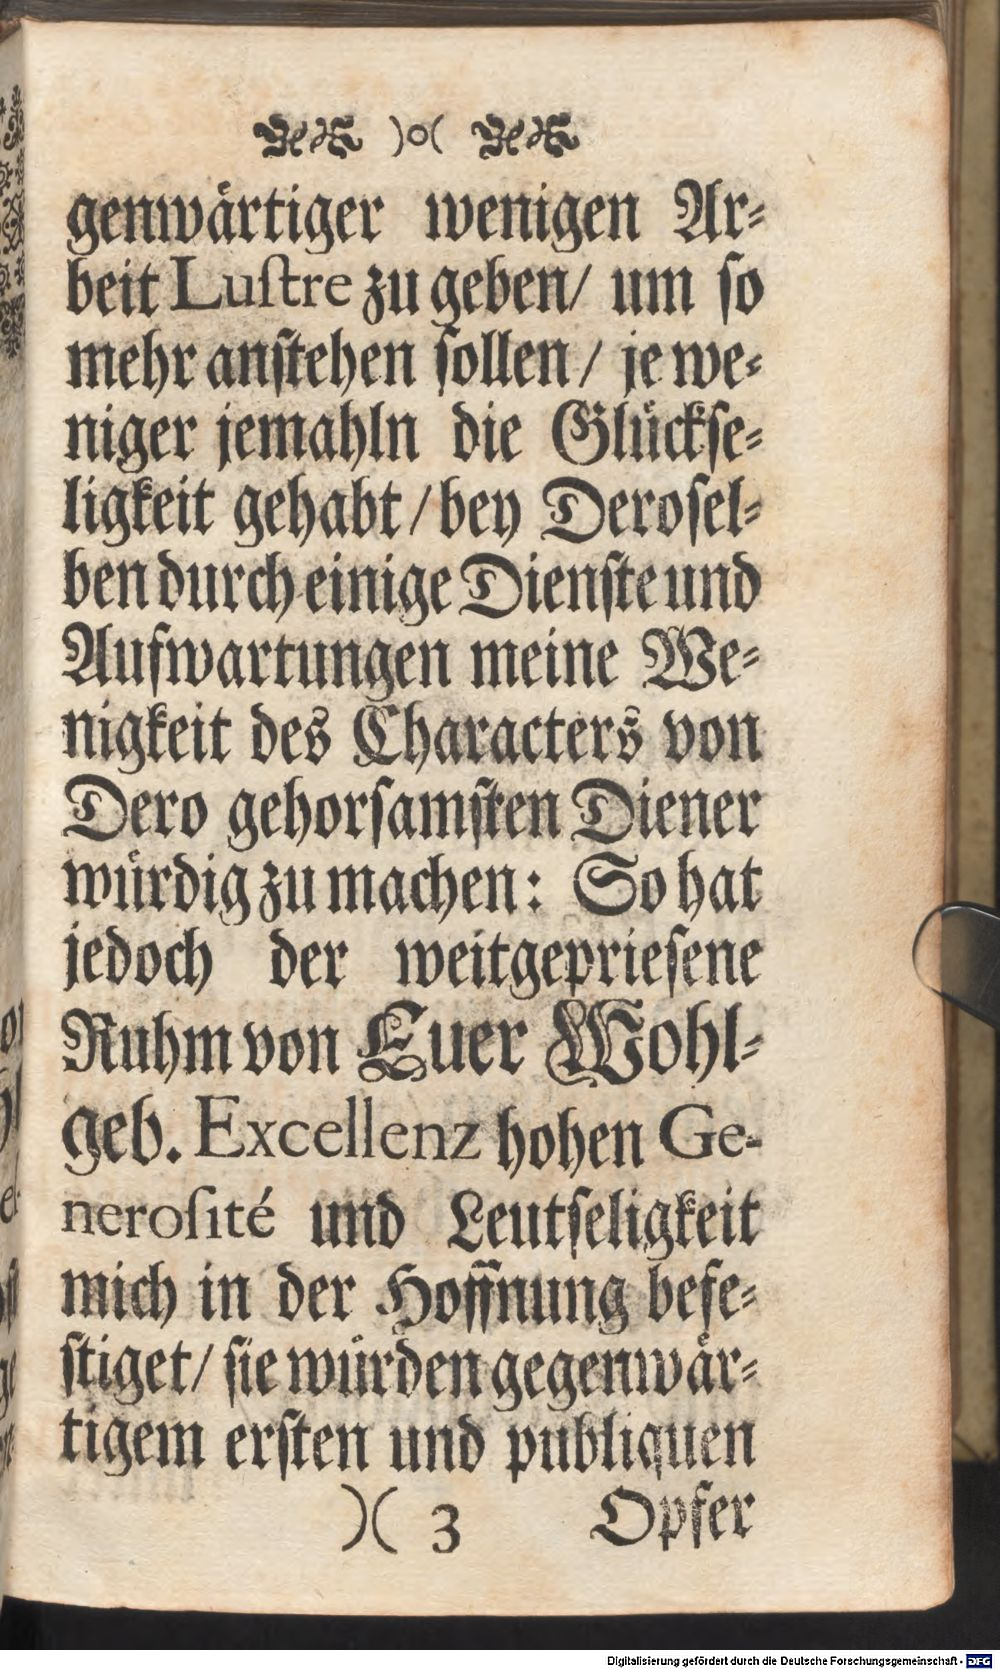 )o(
genwärtiger wenigen Ar⸗
beit Luſtre zu geben/ um ſo
mehr anſtehen ſollen/ je we⸗
niger jemahln die Glückſe⸗
ligkeit gehabt/ bey Deroſel⸗
ben durch einige Dienſte und
Aufwartungen meine We⸗
nigkeit des Characters von
Dero gehorſamſten Diener
würdig zu machen: So hat
jedoch der weitgeprieſene
Ruhm von Euer Wohl⸗
geb. Excellenz hohen Ge-
neroſité und Leutſeligkeit
mich in der Hoffnung befe⸗
ſtiget/ ſie würden gegenwär⸗
tigem erſten und publiquen
)( 3 Opfer
Digitalisierung gefördert durch die Deutsche Forschungsgemeinschaft - DFG